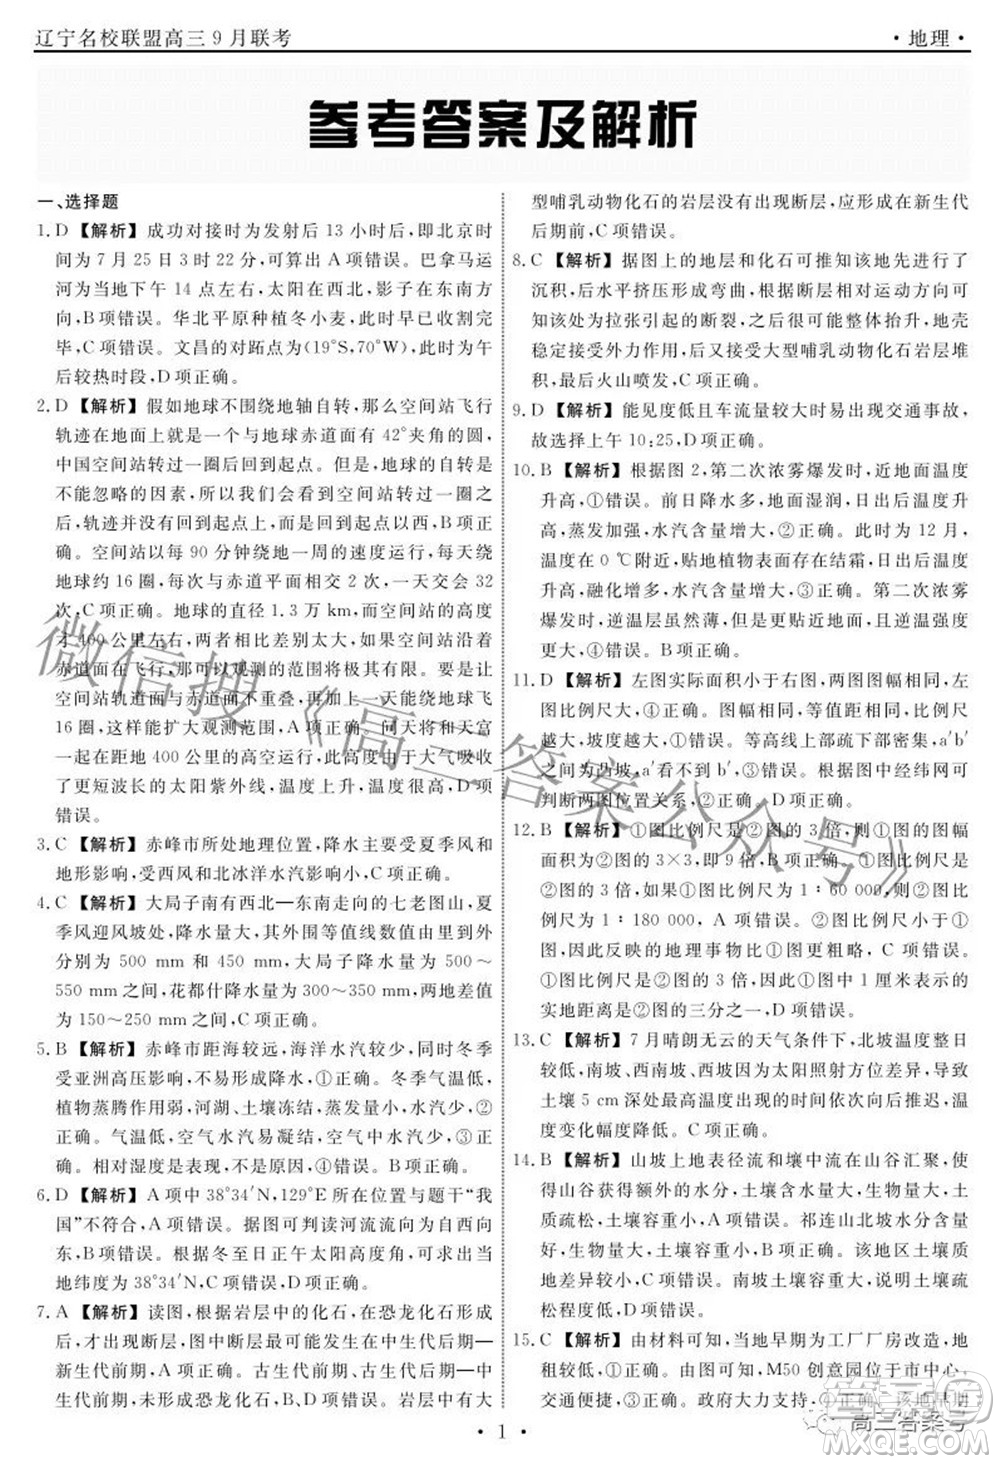 辽宁名校联盟高三9月联考
·地理·
参考答案及解析
一、选择题
1. D 【解析】成功对接时为发射后 13 小时后,即北京时
间为 7 月 25 日 3 时 22 分,可算出 A 项错误。巴拿马运
河为当地下午 14 点左右,太阳在西北,影子在东南方
向,B 项错误。华北平原种植冬小麦,此时已收割完
毕,C 项错误。文昌的对跖点为(19°S,70°W),此时为午
后较热时段,D 项正确。
2. D 【解析】假如地球不围绕地轴自转,那么空间站飞行
轨迹在地面上就是一个与地球赤道面有 42°夹角的圆,
中国空间站飞行一圈会回到起点。但是,地球的自转是
不能忽略的因素,所以我们会看到空间站从起点开始
后,轨迹并没有回到起点,而是回到起点以西,B 项正
确。空间站以每 90 分钟绕地一周的速度运行,每天绕
地球约 16 圈,每次与赤道平面相交两次,一天交会 32
次,C 项正确。地球的直径 1.3 万 km,而空间站的高度
才 400 公里左右,两者相比差别太大,如果空间站沿着
赤道面飞行,那可以观测的范围将极其有限。要是让
空间站轨道与赤道面不重叠,再加上一天能绕地球飞
16 圈,这样就能扩大观测范围,A 项正确。问天将和天宫
一起在距地 400 公里的高空运行,此高度由于大气吸收
了更短波长的太阳紫外线,大气主要成分是氧原子,D 项
错误。
3. C 【解析】赤峰市所处地理位置,降水主要受夏季风和
地形影响,受西风和北冰洋水汽影响小。C 项正确。
4. C 【解析】大局子南有西北—东南走向的七老图山,夏
季风迎风坡处,降水量大,其外围等值线数值由内到外
分别为 500 mm 和 450 mm,大局子降水量为 500～
550 mm 之间,花都什降水量为 300～350 mm,两地差值
为 150～250 mm 之间,C 项正确。
5. B 【解析】赤峰市距海较远,海洋水汽难以到达;冬季
受亚洲高压影响,多下沉气流,①正确。冬季气温低,
植物蒸腾作用弱,河湖、土壤冻结,空气中水汽少,②
正确。气温低,空气水汽易凝结,空气中水汽少,③错
误。相对湿度是表现,不是原因,④错误。B 项正确。
6. D 【解析】A 项中 38°34′N,129°E 所在位置与题干“我
国”不符合,A 项错误。据图可判读河流流向为自西向
东,B 项错误。根据冬至日正午太阳高度角,可算出
当地纬度为 38°34′N,C 项错误,D 项正确。
7. A 【解析】读图,根据岩层中的化石,在恐龙化石形成
后,才出现断层,图中断层最可能发生在中生代后期—
新生代前期,A 项正确。古生代前期、古生代后期—中
生代前期,未形成恐龙化石,B、D 项错误。岩层中有大
型哺乳动物化石的岩层没有出现断层,应形成在新生代
后期前,C 项错误。
8. C 【解析】据图上的地层和化石可推知该地先进行了
沉积,后水平挤压形成弯曲,根据断层的相对方向,可
知该处为拉张引起的断裂,之后经过整体抬升,地壳
稳定接受外力作用,后出现大型哺乳动物化石岩层堆
积,最后火山喷发,C 项正确。
9. D 【解析】能见度低且车流量较大时易出现交通事故,
故选择上午 10:25,D 项正确。
10. B 【解析】根据图 2,第二次浓雾爆发时,近地面温度
升高,①错误。前日降水多,地面湿润,日出后温度升
高,蒸发加强,水汽含量增大,②正确。此时为 12 月,
温度在 0 ℃附近,贴地植物表面存在结霜,日出后温
度升高,融化增多,水汽含量增大,③正确。第二次浓雾
爆发时,逆温层虽然薄,但更接近地面,且逆温强度更
大,④错误。B 项正确。
11. D 【解析】左图实际面积小于右图,两图图幅相同,左
图比例尺大,①错误。图幅相同,等值距相同,左图落差
越大,坡度越大,③错误。等高线上疏下部密集,a′b′
之间为凸坡,a′看不到 b′,④正确。根据图中经纬网可
判断两图位置关系,②正确。D 项正确。
12. B 【解析】①图比例尺是②图的 3 倍,所以②图的图幅
面积是①图的 3×3,即 9 倍,B 项正确。①图比例尺是
②图的 3 倍,如果①图比例尺是 1∶60 000,则②图比
例尺为 1∶180 000,A 项错误。②图比例尺小于①
图,因此反映的地理事物比①更粗略,C 项错误。①图
比例尺是②图的 3 倍,因此①图中 1 厘米表示的
实地距离是②图的三分之一,D 项错误。
13. C 【解析】7 月晴朗无云的天气条件下,北坡应为阴
坡,东南坡、南坡、西南坡、西坡因为太阳照射角度不同,
土壤 5 cm 深处最高温度出现的时间依次往后推迟,温
度变化幅度降低。C 项正确。
14. B 【解析】山坡上地表径流和壤中流在山谷汇聚,使
山谷获得额外的水分,土壤含水量大,生物量大,土
质疏松,土壤容重小,①正确。祁连山北坡水分含量
多,生物量大,土壤容重小,②正确。该地区土壤质
地差异较小,③错误。南坡土壤容重大,说明土壤疏
松程度低,④错误。B 项正确。
15. C 【解析】由材料可知,当地早期为工厂厂房改造,地
租较低,①正确。由图可知,M50 创意园位于市中心,
交通便捷,③正确。政府大力支持,④正确。该地早期
· 1 ·
微信搜《高三答案公众号》
高三答案号
答案圈
MXQE.COM